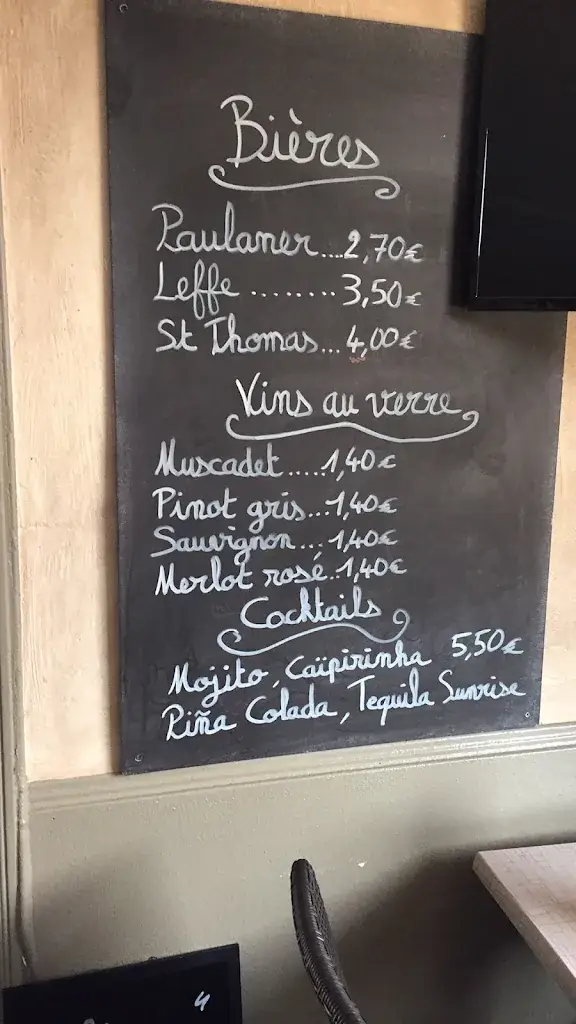 Bières
Paulaner....2,70€
Leffe ........3,50€
St Thomas...4,00€
Vins au verre
Muscadet.....1,40€
Pinot gris...1,40€
Sauvignon...1,40€
Merlot rosé..1,40€
Cocktails
Mojito, Caïpirinha 5,50€
Piña Colada, Tequila Sunrise
4